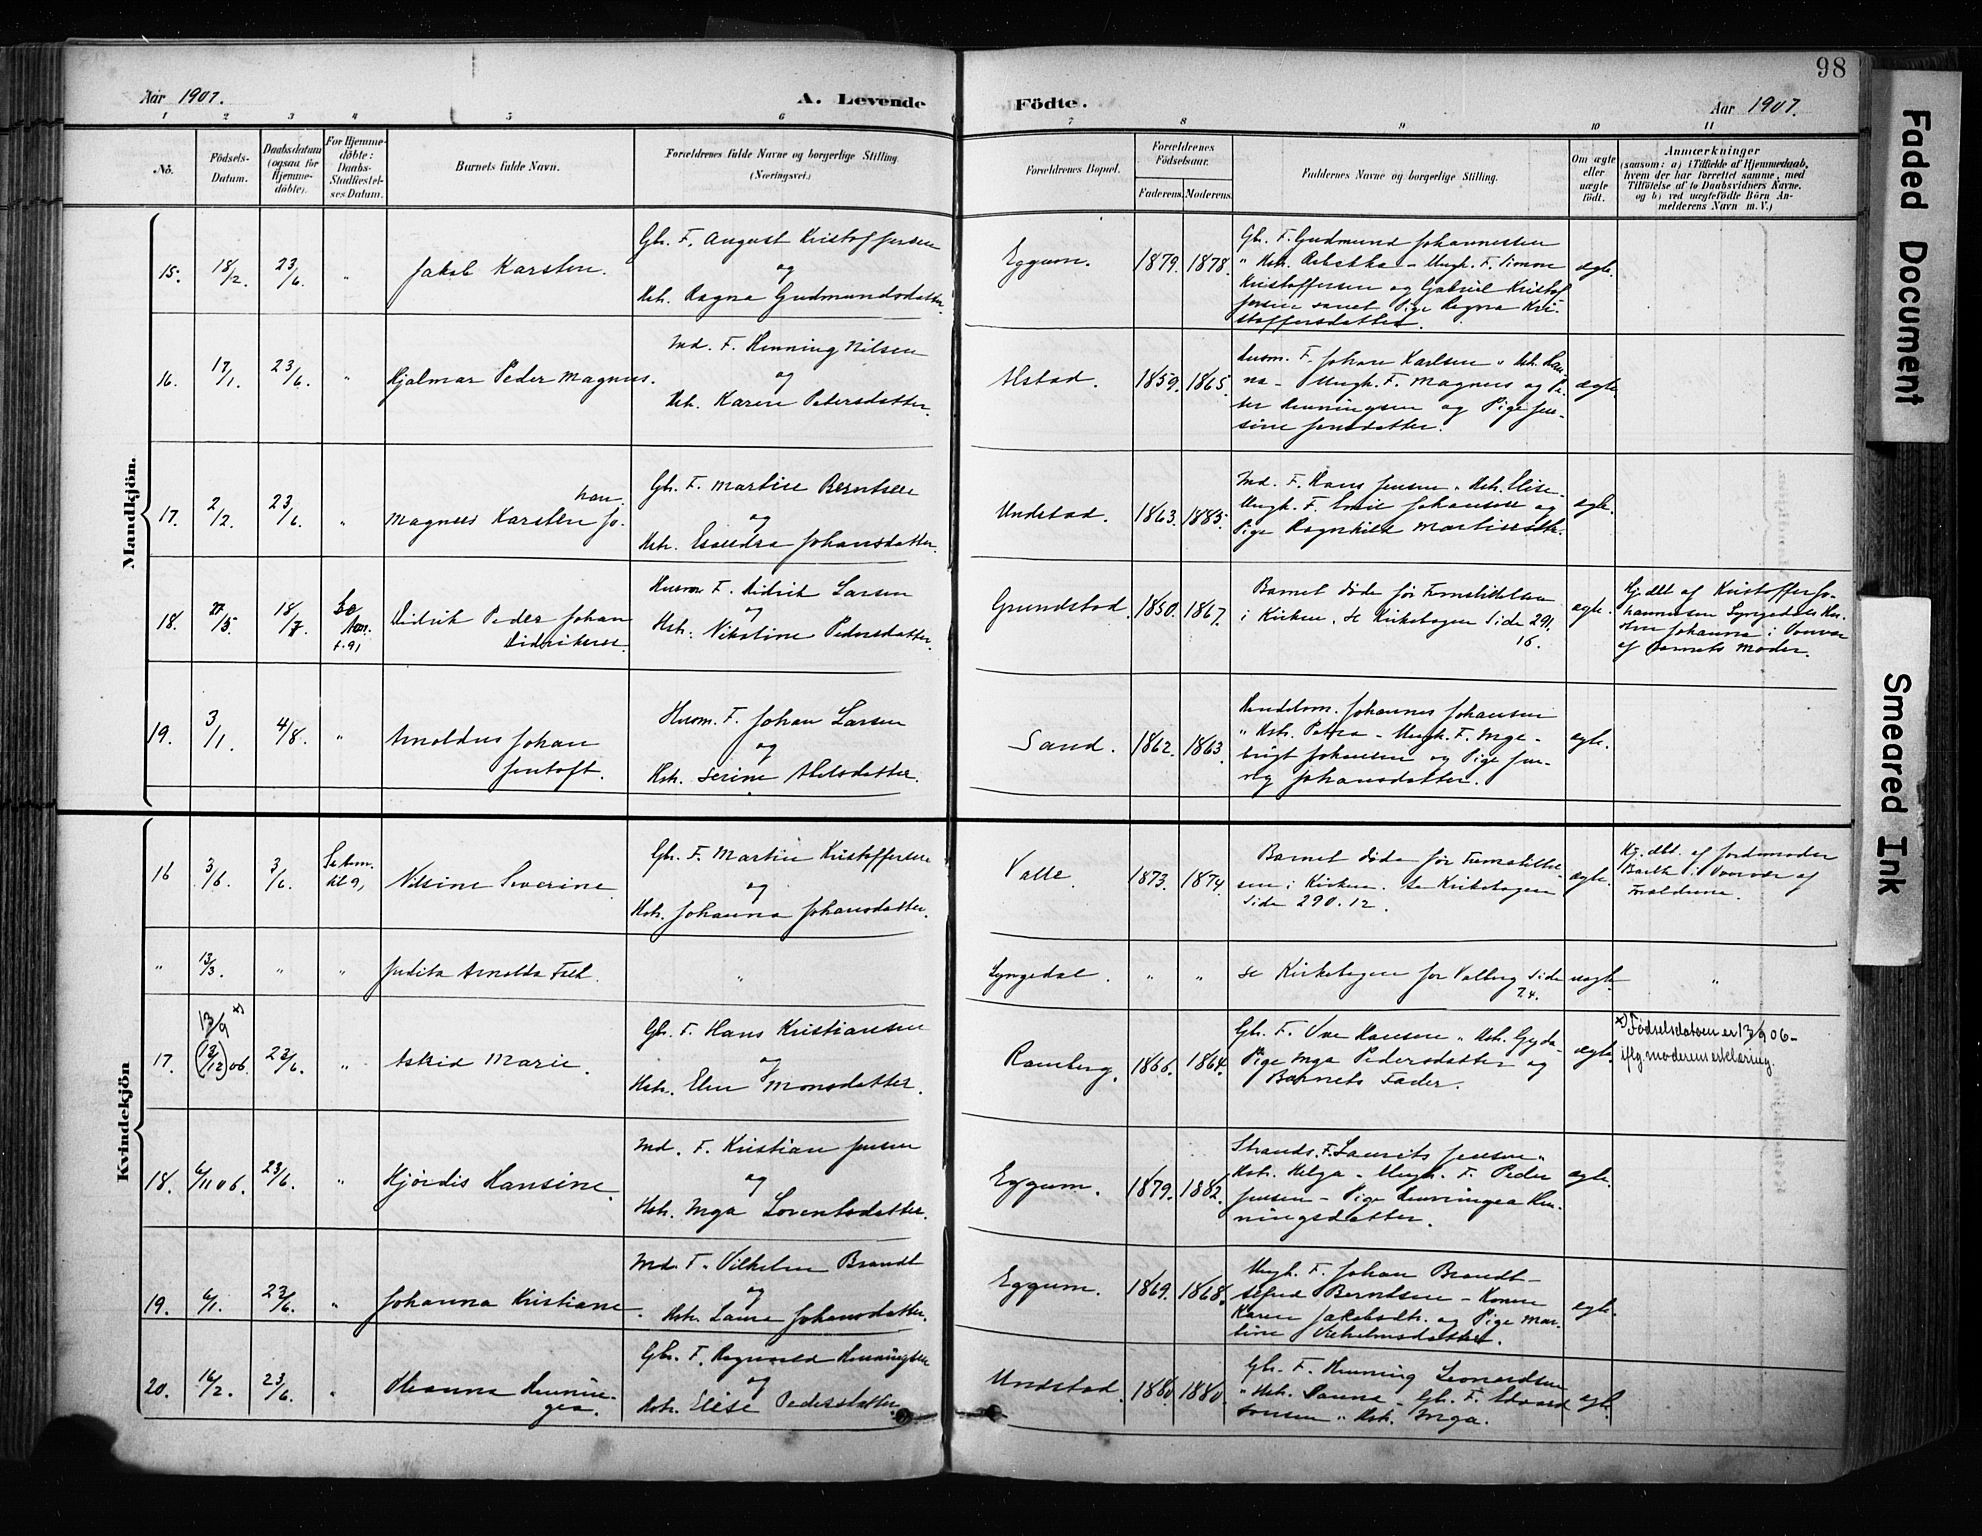 98
Aar 1907.
A. Levende
Födte.
Aar 1907.
1 2 3 4 5 6 7 8 9 10 11
No.
Födsels-
Datum.
Daabsdatum
(ogsaa for
Hjemme-
döbte).
For Hjemme-
döbte:
Daabs-
Stadfæstel-
ses Datum.
Barnets fulde Navn.
Forældrenes fulde Navne og borgerlige Stilling
(Næringsvei.)
Forældrenes Bopæl.
Forældrenes
Födselsaar.
Faderens. Moderens.
Faddernes Navne og borgerlige Stilling.
Om ægte
eller
uægte
födt.
Anmærkninger
(saasom: a) i Tilfælde af Hjemmedaab,
hvem der har forrettet samme, med
Tilföielse af to Daabsvidners Navne.
og b) ved uægtefödte Börn An-
melderens Navn m. V.)
Mandkjön.
15. 18/2. 23/6. " Jakob Karsten.
Gbr. F. August Kristoffersen
og
Hstr. Ragna Gudmundsdatter.
Eggum. 1879. 1878.
Gbr. F. Gudmund Johannessen
" Hstr. Rebekka - Ungk. F. Simon
Kristoffersen og Gabriel Kristof
fersen samt Pige Ragna Kri-
stoffersdatter.
ægte.
16. 17/1. 23/6. " Hjalmar Peder Magnus.
Ind. F. Henning Nilsen
og
Hstr. Karen Pedersdatter.
Alstad. 1859. 1865.
Husm. F. Johan Karlsen " Hstr. Han-
na - Ungk. F. Magnus og Pe-
der Henningsen og Pige Jen-
sine Jensdatter.
ægte.
17. 2/2. 23/6. " Magnus Karsten Jo-
han.
Gbr. F. Martin Berntsen
og
Hstr. Johansdatter.
Undstad. 1863. 1885.
Ind. F. Hans Jensen " Hstr. Elise -
Ungk. F. Emil Johansen og
Pige Ragnhild
ægte.
18. 27/5. 18/7. Se Anm. t. 9,
Didrik Peder Johan
Didriksen.
Husm. F. Didrik Larsen
og
Hstr. Nikoline Pedersdatter.
Grundstad. 1850. 1867.
Barnet døde før Fremstillelsen
i Kirken. Se Kirkebogen Side 291.
16.
ægte.
Hj. dbt. af Kristoffer Jo-
hannesen Lyngedal Hu-
stru Johanna i Nærvær
af Barnets Moder.
19. 3/1. 4/8. " Arnoldus Johan
Jentoft.
Husm. F. Johan Larsen
og
Hstr. Serine Nilsdatter.
Sand. 1862. 1863.
Handelsm. Johannes Johansen
" Hstr. Petra - Ungk. F. Inge-
brigt Johansen og Pige
Johansdatter.
ægte.
Kvindekjön
16 3/6. 3/6. Se Anm. til 9,
Nilsine Severine.
Gbr. F. Martin Kristoffersen
og
Hstr. Johanna Johansdatter.
Valle. 1873. 1874.
Barnet døde før Fremstillel-
sen i Kirken. Se Kirkebogen
Side 290. 12.
ægte.
Hj. dbt. af Jordmoder
Barth i Nærvær af
Forældrene.
" 13/3. " " Judita Arnolda Falk. "
Lyngedal. " "
Se Kirkebogen for Valberg Side
74.
uægte. "
17. 13/9 x) (13/12) 06. 23/6. " Astrid Marie.
Gbr. F. Hans Kristiansen
og
Hstr. Elen Monsdatter.
Ramberg. 1866. 1864.
Gbr. F. Ove Hansen " Hstr. Gyda -
Pige Inga Pedersdatter og
Barnets Fader.
ægte.
x) Fødselsdatoen er 13/9 06 -
iflg. moderens erklæring.
18. 6/11 06. 23/6. " Hjørdis Hansine.
Ind. F. Kristian Jensen
og
Hstr. Inga Lorentsdatter.
Eggum. 1879. 1882.
Strands. F. Laurits Jensen "
Hstr. Helga - Ungk. F. Peder
Jensen - Pige Henningea Hen-
ningsdatter.
ægte.
19. 6/1. 23/6. " Johanna Kristiane.
Ind. F. Vilhelm Brandt
og
Hstr. Laura Johansdatter.
Eggum. 1869. 1868.
Ungk. F. Johan Brandt -
Sefred Berntsen - Kone
Karen Jakobsdtr. og Pige Mar-
tine Vilhelmsdatter.
ægte.
20. 16/2. 23/6. " Henni-
gea.
Gbr. F. Ragnvald Henningsen
og
Hstr. Elise Pedersdatter.
Undstad. 1880. 1880.
Gbr. F. Henning Leonardsen
" Hstr. Hanna - Gbr. F. Edvard
" Hstr. Inga.
ægte.
Faded Document
Smeared Ink